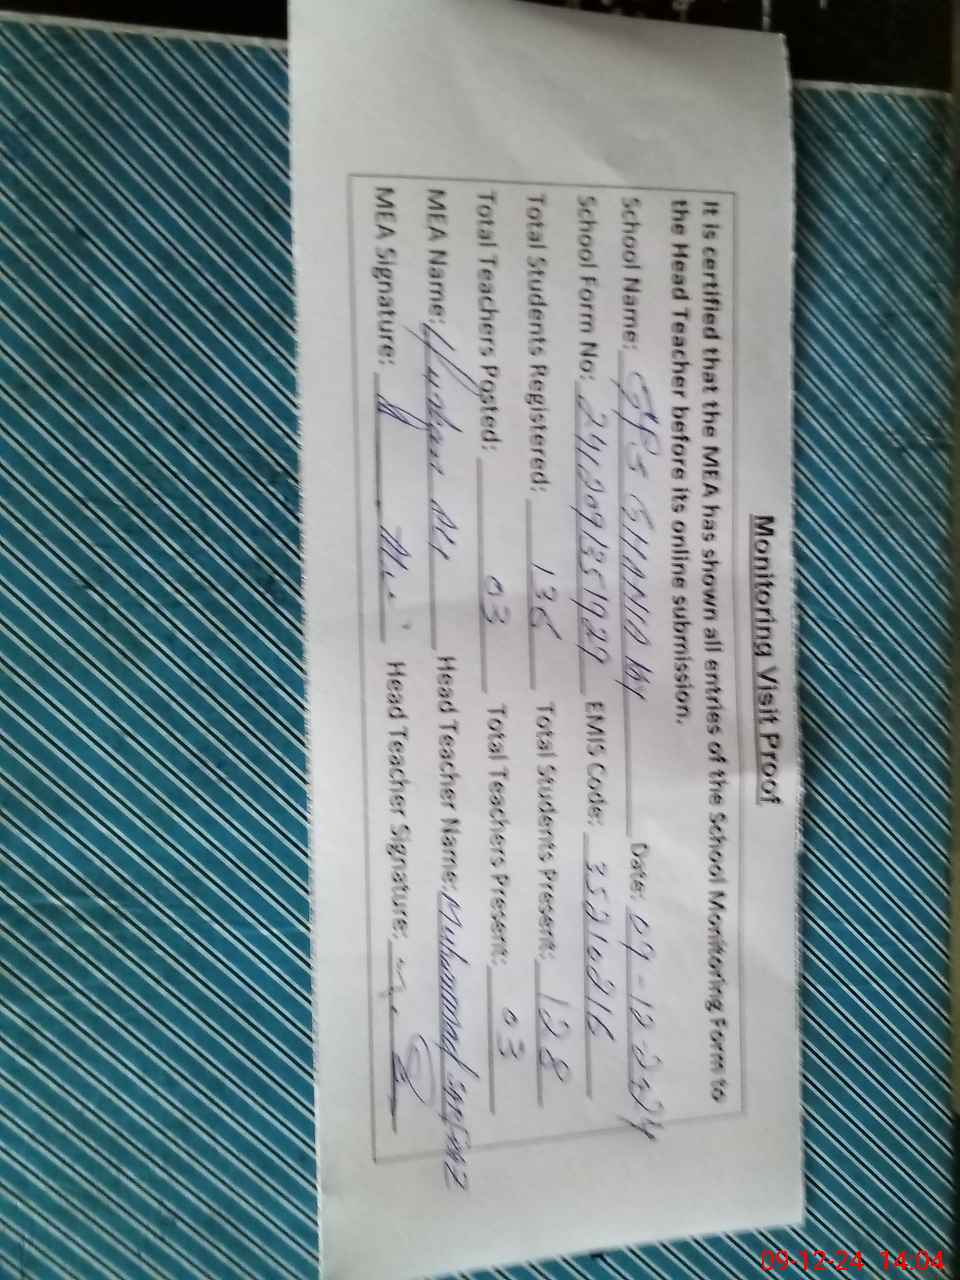 Monitoring Visit Proof
It is certified that the MEA has shown all entries of the School Monitoring Form to
the Head Teacher before its online submission.
School Name: GPS Date: 09-12-2024
School Form No: EMIS Code: 35210216
Total Students Registered: 136 Total Students Present: 128
Total Teachers Posted: 03 Total Teachers Present: 03
MEA Name: Ali Head Teacher Name: Muhammad Sarfraz
MEA Signature: Ali Head Teacher Signature:
09-12-24 14:04